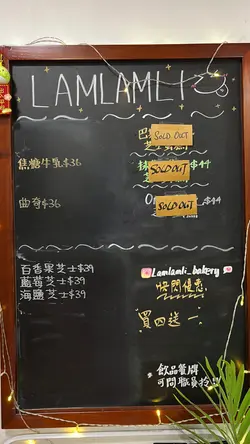 LAMLAMLI
SOLD OUT
焦糖牛乳$36
SOLD OUT
$44
曲奇$36
SOLD OUT
$44
百香果芝士$39
藍莓芝士$39
海鹽芝士$39
Lamlamli_bakery
優惠
買四送一
* 飲品餐牌
可問職員拎!!!